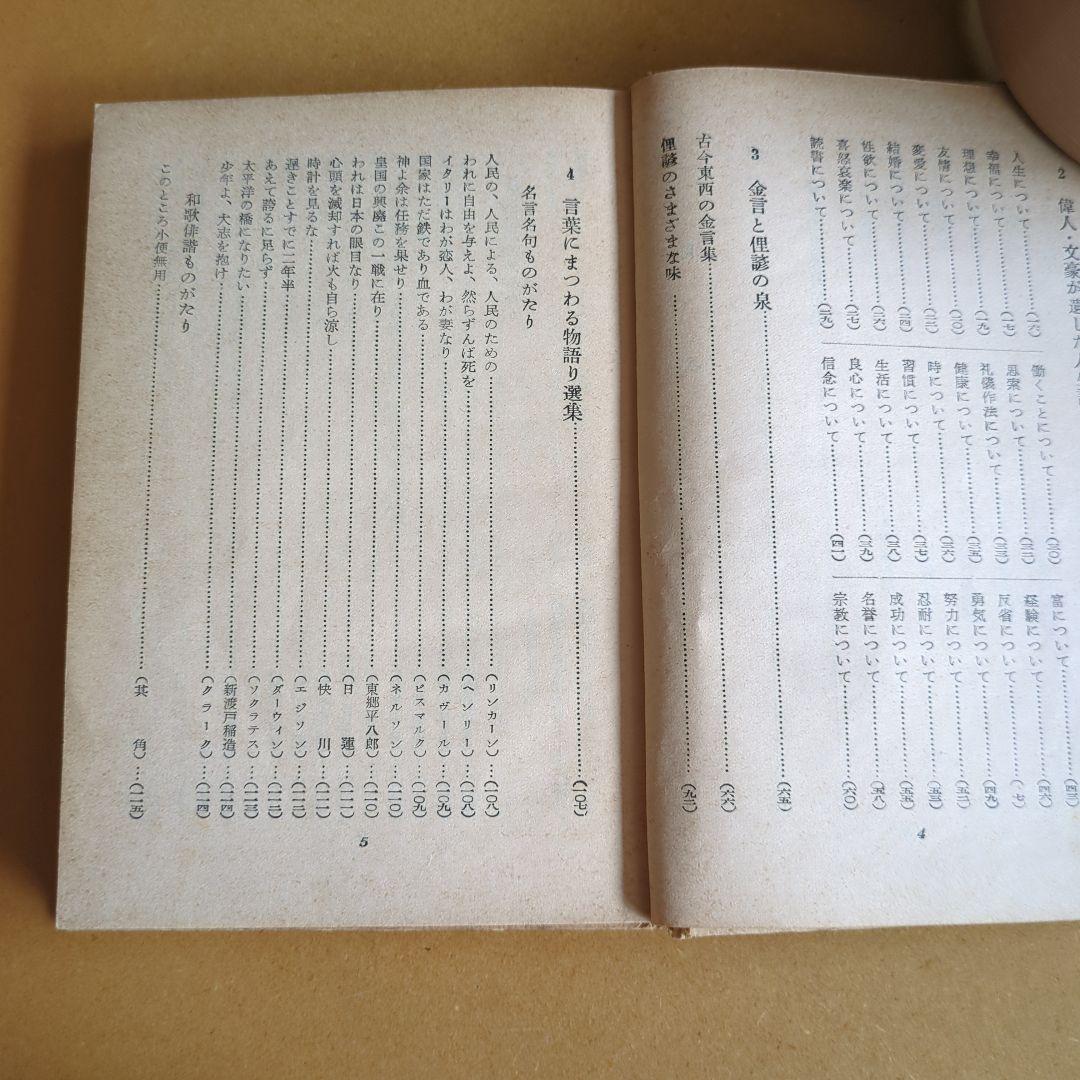 2 偉人・文豪が遺した
人生について…(一六)
幸福について…(一七)
理想について…(一九)
友情について…(二〇)
恋愛について…(二二)
結婚について…(二四)
性欲について…(二六)
喜怒哀楽について…(二七)
読書について…(二九)
働くことについて…(三〇)
思索について…(三二)
礼儀作法について…(三三)
健康について…(三五)
時について…(三六)
習慣について…(三七)
生活について…(三八)
良心について…(三九)
信念について…(四一)
富について…(四三)
経験について…(四六)
反省について…
勇気について…(四九)
努力について…(五二)
忍耐について…(五三)
成功について…(五五)
名誉について…(五八)
宗教について…(六〇)
3 金言と俚諺の泉…(六五)
古今東西の金言集…(六六)
俚諺のさまざまな味…(九二)
4
4 言葉にまつわる物語り選集…(一〇七)
名言名句ものがたり
人民の、人民による、人民のための…(リンカーン)…(一〇八)
われに自由を与えよ、然らずんば死を…(ヘンリー)…(一〇八)
イタリーはわが恋人、わが妻なり…(カヴール)…(一〇九)
国家はただ鉄であり血である…(ビスマルク)…(一〇九)
神よ余は任務を果せり…(ネルソン)…(一一〇)
皇国の興廃この一戦に在り…(東郷平八郎)…(一一〇)
われは日本の眼目なり…(日蓮)…(一一一)
心頭を滅却すれば火も自ら涼し…(快川)…(一一一)
時計を見るな…(エジソン)…(一一二)
遅きことすでに二年半…(ダーウィン)…(一一二)
あえて誇るに足らず…(ソクラテス)…(一一三)
太平洋の橋になりたい…(新渡戸稲造)…(一一四)
少年よ、大志を抱け…(クラーク)…(一一四)
和歌俳諧ものがたり
このところ小便無用…(其角)…(一一五)
5